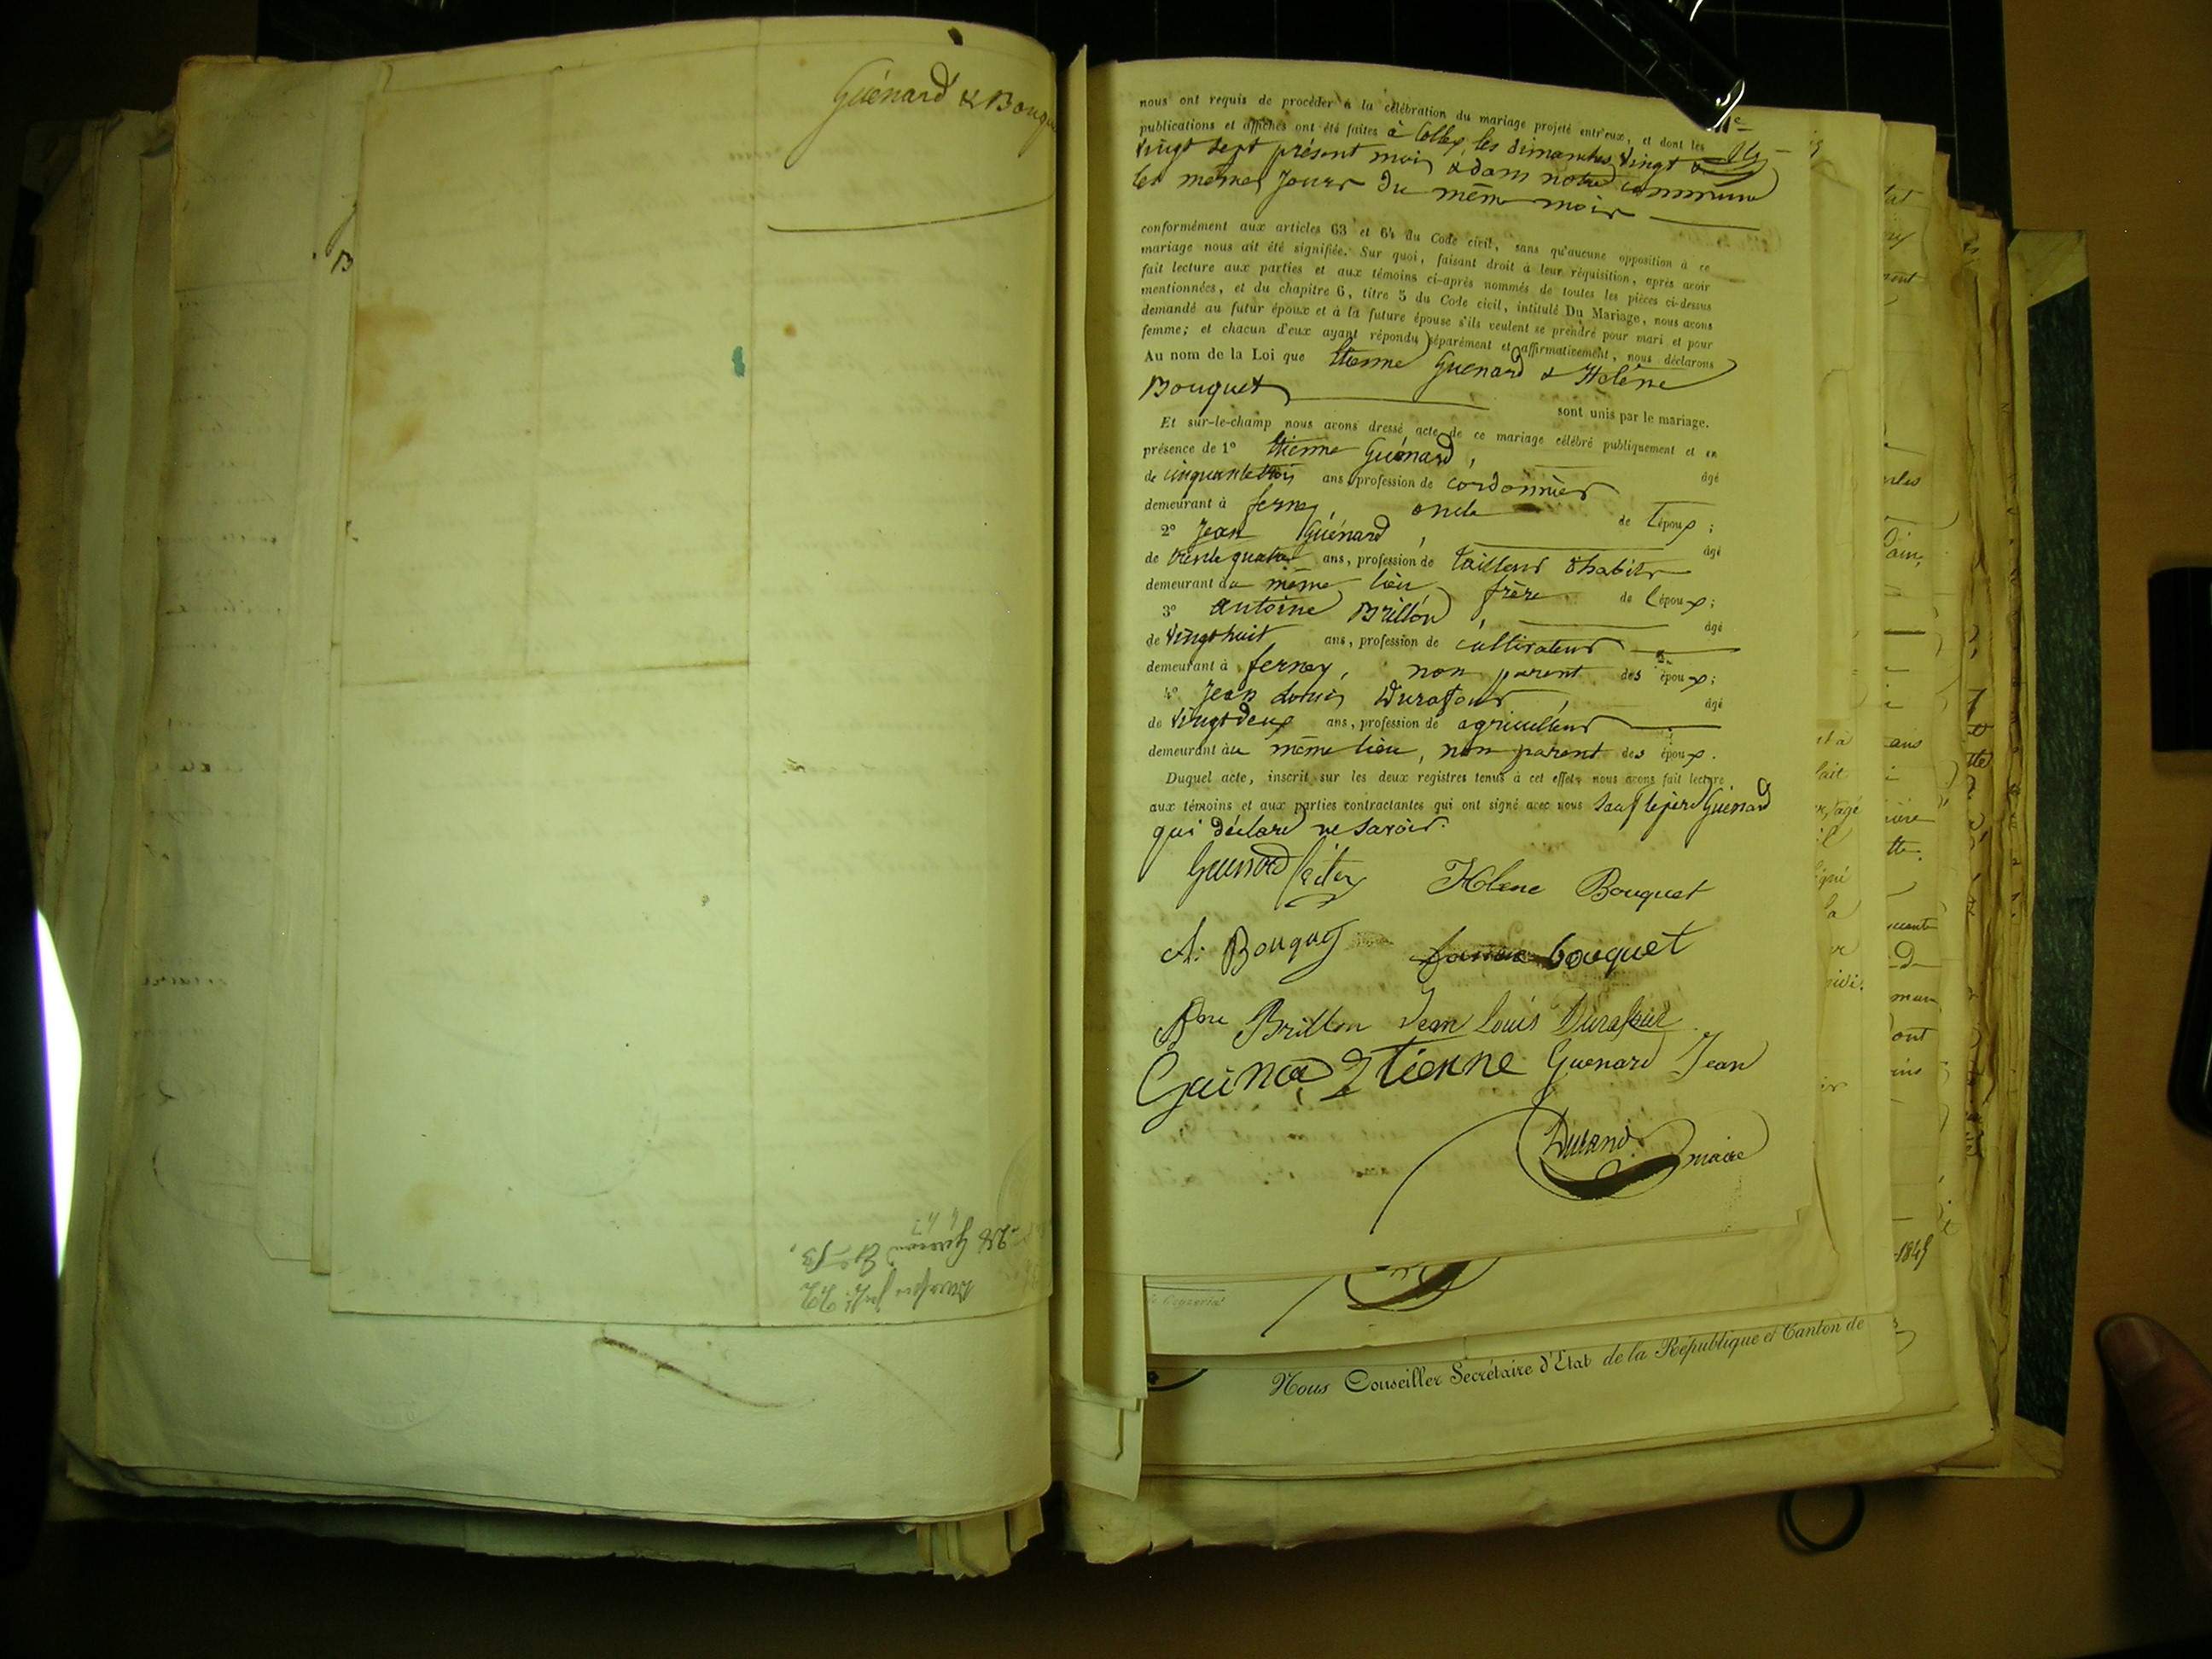 Guénard & Bouqu
nous ont requis de procéder à la célébration du mariage projeté entr'eux, et dont les
publications et affiches ont été faites à Collex, les dimanches vingt &
vingt sept présent mois & dans notre commune
les mêmes Jours du même mois
conformément aux articles 63 et 64 du Code civil, sans qu'aucune opposition à ce
mariage nous ait été signifiée. Sur quoi, faisant droit à leur réquisition, après avoir
fait lecture aux parties et aux témoins ci-après nommés de toutes les pièces ci-dessus
mentionnées, et du chapitre 6, titre 5 du Code civil, intitulé Du Mariage, nous avons
demandé au futur époux et à la future épouse s'ils veulent se prendre pour mari et pour
femme; et chacun d'eux ayant répondu séparément et affirmativement, nous déclarons
Au nom de la Loi que Etienne Guenard & Helène
Bouquet sont unis par le mariage.
Et sur-le-champ nous avons dressé acte de ce mariage célébré publiquement et en
présence de 1º Etienne Guénard, âgé
de cinquante trois ans, profession de cordonnier
demeurant à ferney, oncle de l'époux;
2º Jean Guénard, âgé
de trente quatre ans, profession de tailleur d'habits
demeurant au même lieu, frère de l'époux;
3º antoine Brillon, âgé
de vingt huit ans, profession de cultivateur
demeurant à ferney, non parent des époux;
4º Jean Louis Durafour, âgé
de vingt deux ans, profession de agriculteur
demeurant au même lieu, non parent des époux.
Duquel acte, inscrit sur les deux registres tenus à cet effet, nous avons fait lecture
aux témoins et aux parties contractantes qui ont signé avec nous sauf le père Guénard
qui déclare ne savoir.
Helene Bouquet
A. Bouquet bouquet
Brillon Jean Louis Durafour
Guinard Etienne Guenard Jean
Durand maire
1845
Nous Conseiller Secrétaire d'Etat de la République et Canton de